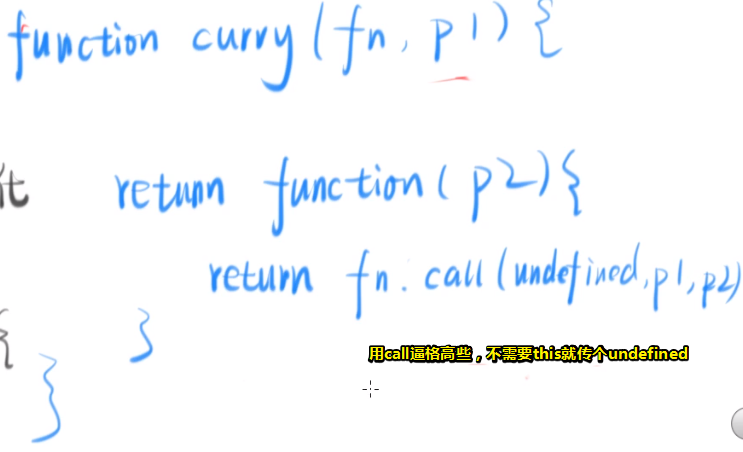 function curry(fn, p1) {
return function(p2){
return fn.call(undefined,p1,p2)
}
用call逼格高些，不需要this就传个undefined
{
}